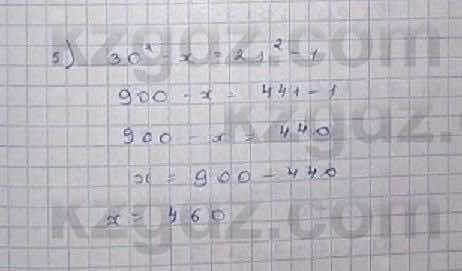 5) 30² - x = 21² - 1
900 - x = 441 - 1
900 - x = 440
x = 900 - 440
x = 460
kzgaz.com
kzgaz.com
kzgaz.com